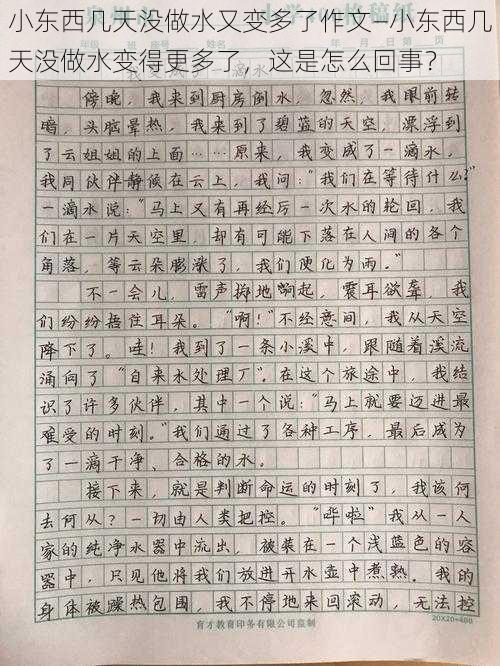 小东西几天没做水又变多了作文—小东西几
天没做水变得更多了，这是怎么回事？
我变成了一滴水
傍晚，我来到厨房倒水，忽然，我眼前转
暗，头脑晕热，我来到了碧蓝的天空，漂浮到
了云姐姐的上面……原来，我变成了一滴水，
我同伙伴静候在云上，我问："我们在等待什么？"
一滴水说："马上又有再经厉一次水的轮回，我
们在一片天空里，却有可能下落在人间的各个
角落，等云朵膨涨了，我们便化为雨。"
不一会儿，雷声掷地响起，震耳欲聋，我
们纷纷捂住耳朵。"啊！"不经意间，我从天空
降下了。哇！我到了一条小溪中，跟随着溪流
涌向了"自来水处理厂"。在这个旅途中，我结
识了许多伙伴，其中一个说："马上就要迈进最
难受的时刻。"我们通过了各种工序，最后成为
了一滴干净、合格的水。
接下来，就是判断命运的时刻了，我该何
去何从？一切由人类把控。"哗啦"我从一人
家的纯净水器中流出，被装在一个浅蓝色的容
器中，只见他将我们放进开水壶中煮熟。我的
身体被躁热包围，我不停地来回滚动，无法控
育才教育印务有限公司监制
20X20=400